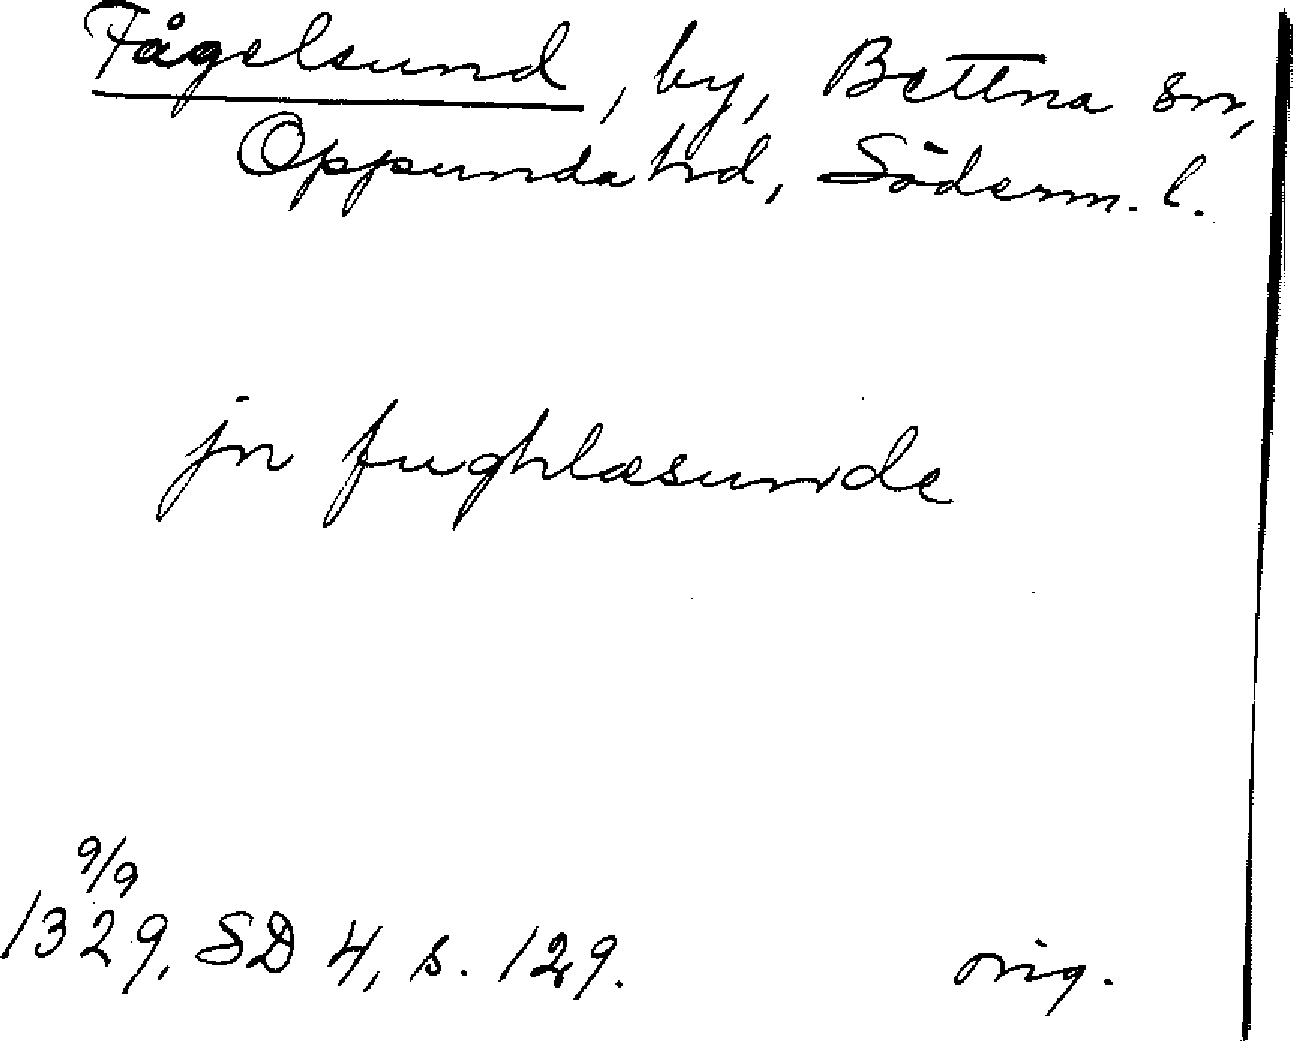 Fågelsund, by, Bettna sn,
Oppunda hd, Söderm. l.
jn fughlæsunde
9/9
1329, SD 4, s. 129.
orig.